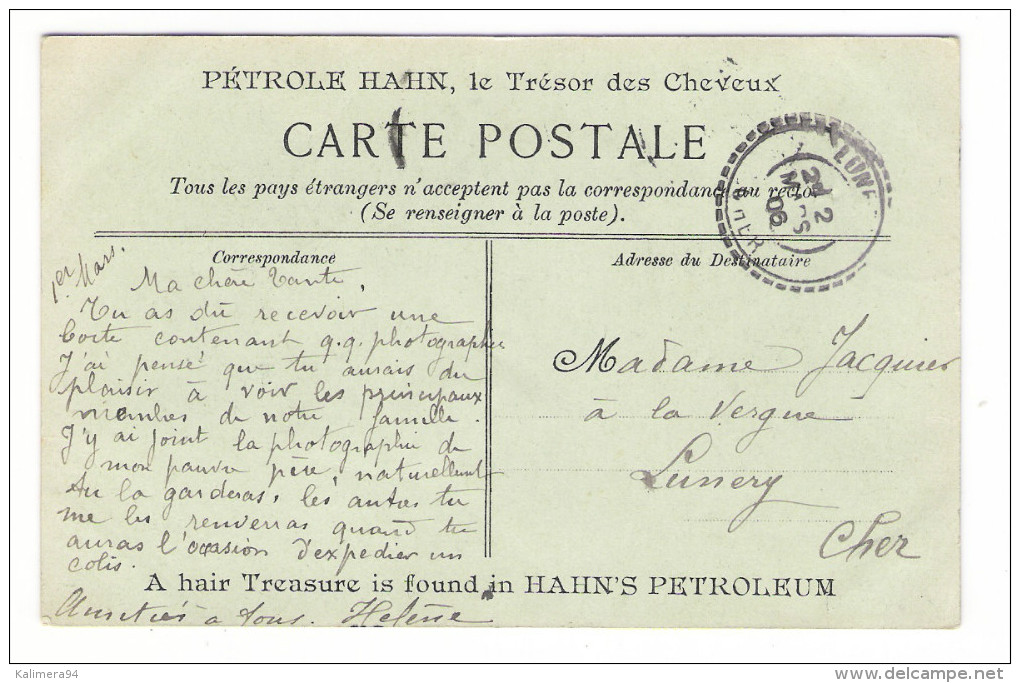 PÉTROLE HAHN, le Trésor des Cheveux
CARTE POSTALE
Tous les pays étrangers n'acceptent pas la correspondance au recto
(Se renseigner à la poste).
LUNE
2
2
MARS
06
CHER
Correspondance
Adresse du Destinataire
1er Mars.
Ma chère Tante,
Tu as dû recevoir une
boite contenant q.q. photographies
J'ai pensé que tu aurais du
plaisir à voir les principaux
membres de notre famille.
J'y ai joint la photographie de
mon pauvre père, naturellement
tu la garderas, les autres tu
me les renverras quand tu
auras l'occasion d'expedier un
colis.
Amitiés à tous. Helène
Madame Jacquier
à la Vergne
Lunery
Cher
A hair Treasure is found in HAHN'S PETROLEUM
Kalimera94
www.delcampe.net